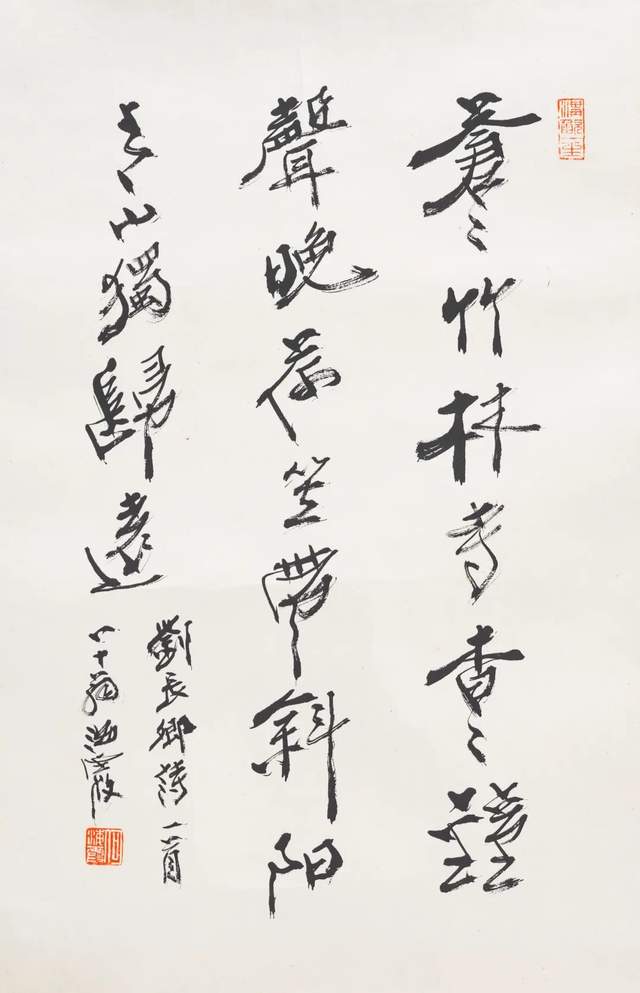 蒼〻竹林寺杳〻鐘
聲晚荷笠帶斜阳
青山獨歸遠
劉長卿詩一首
八十翁